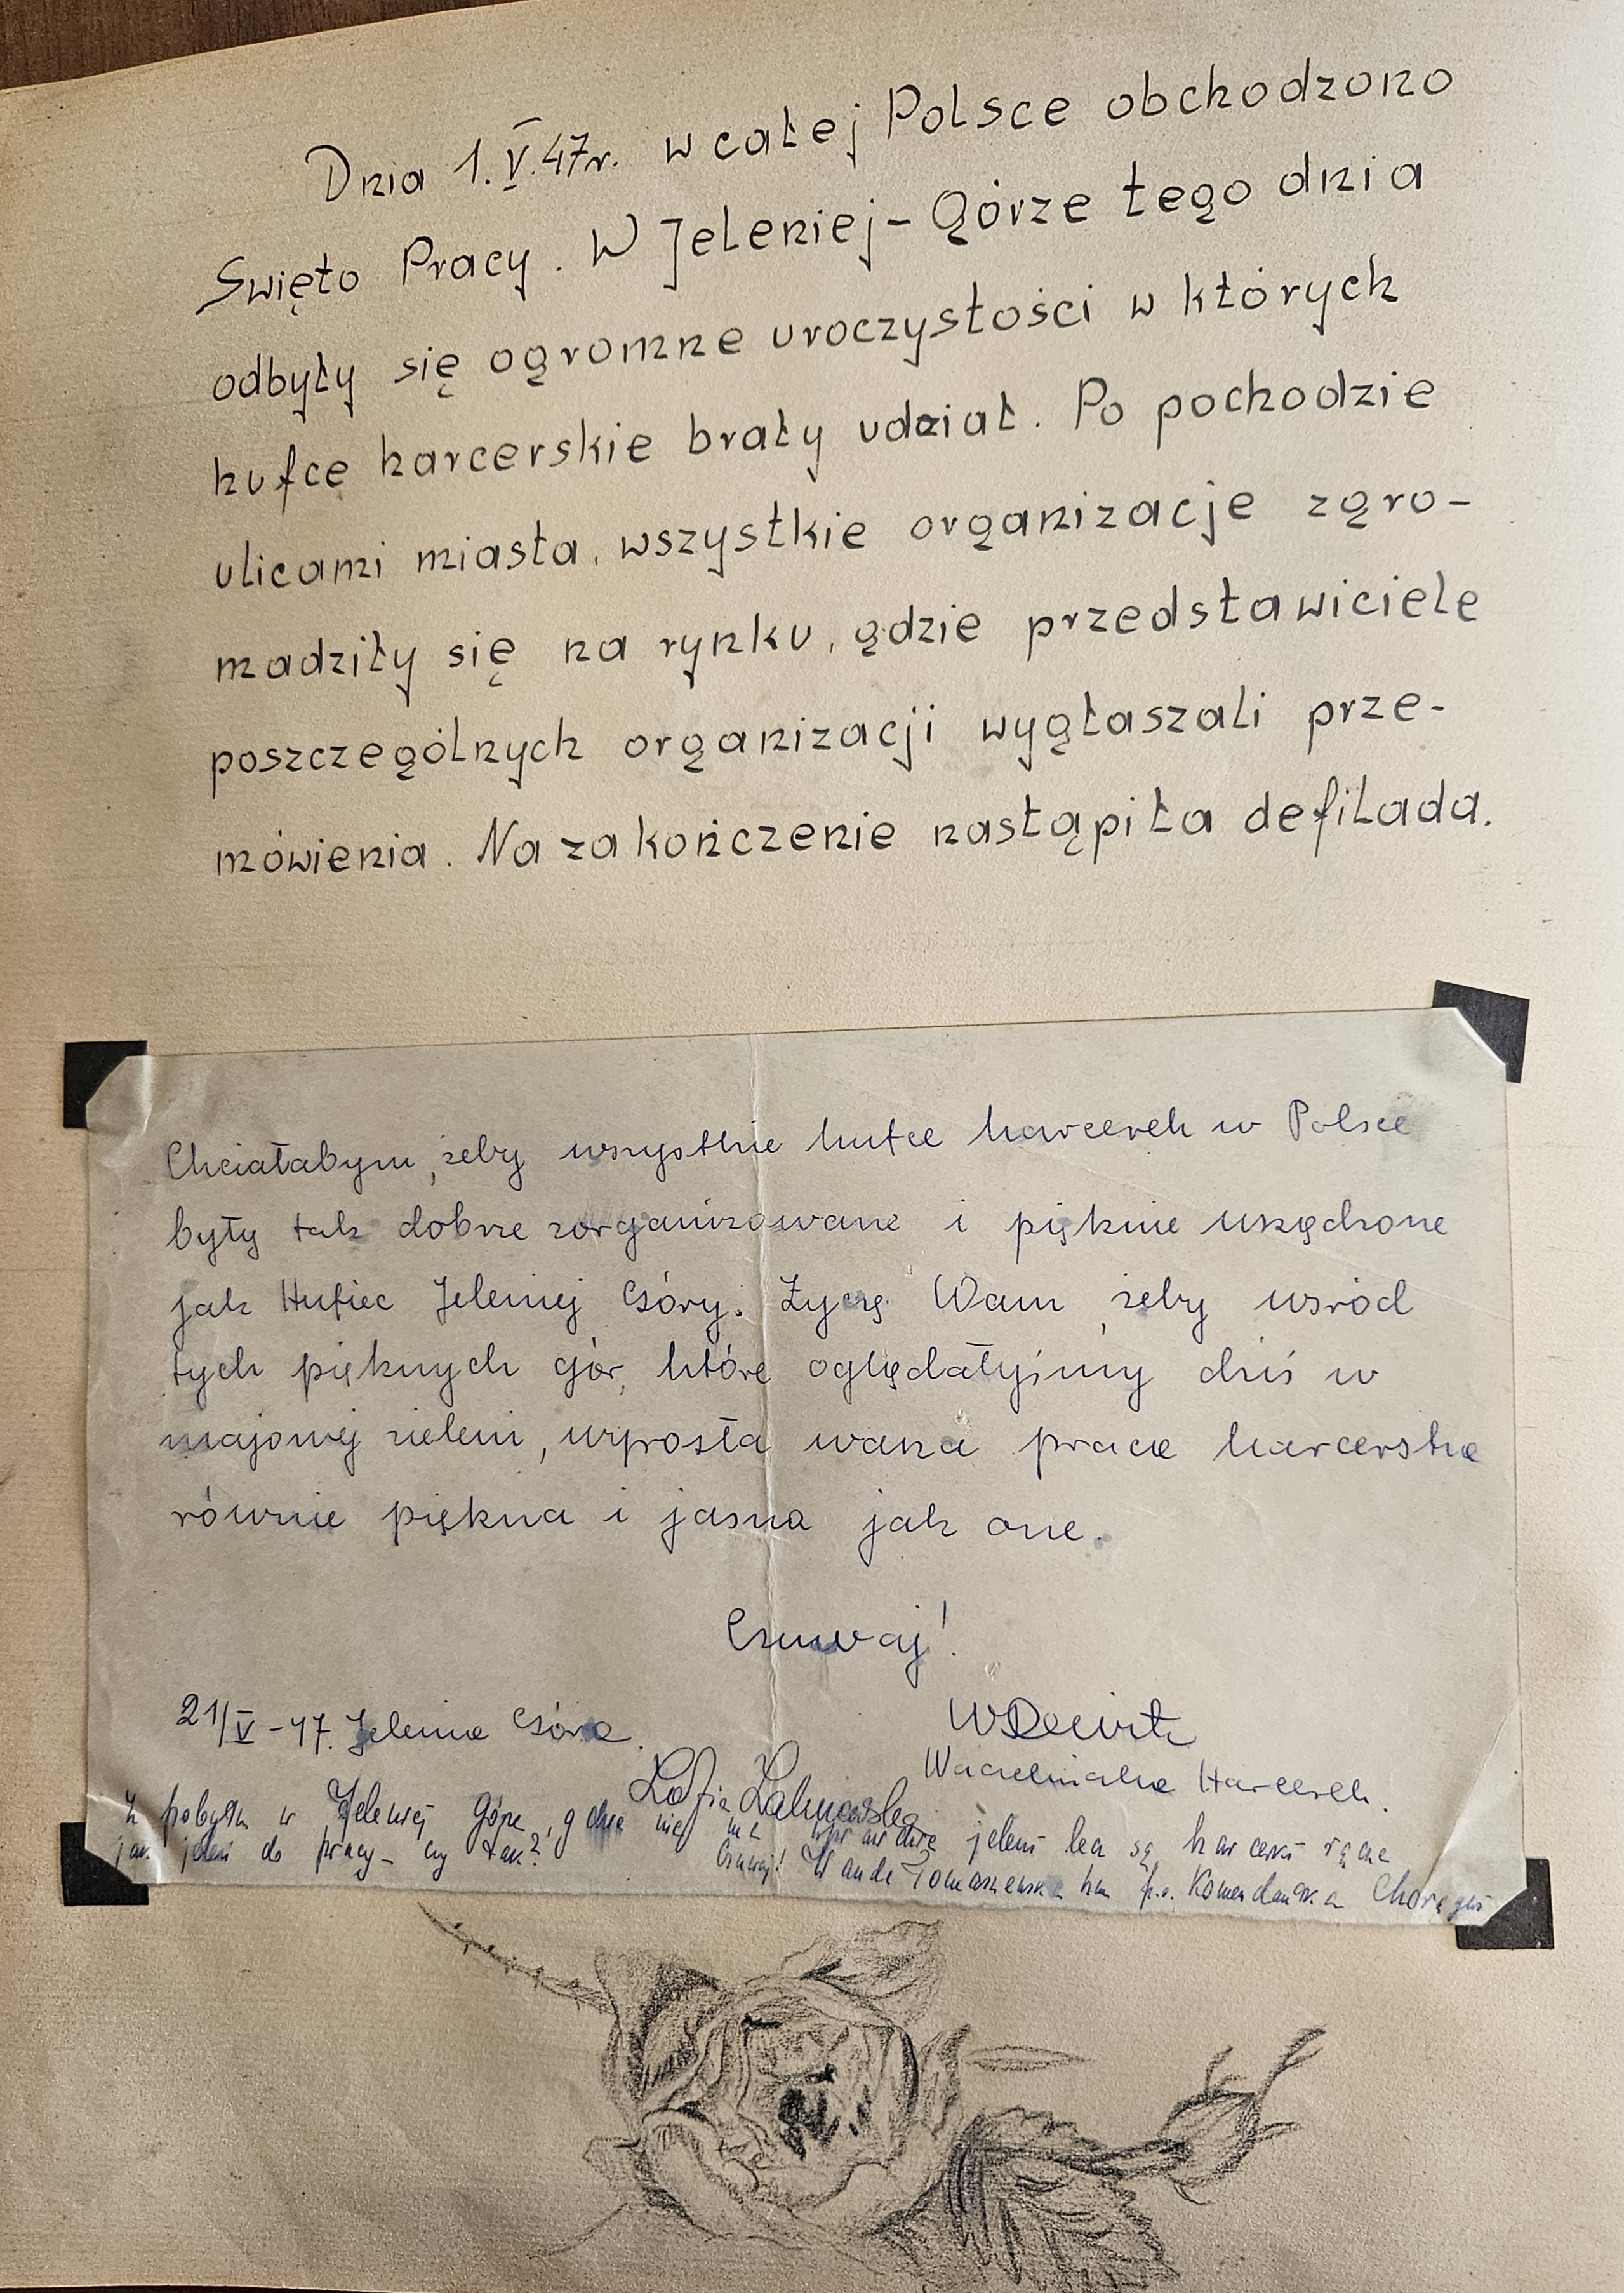 Dnia 1.V.47r. w całej Polsce obchodzono
Święto Pracy. W Jeleniej-Górze tego dnia
odbyły się ogromne uroczystości w których
hufce harcerskie brały udział. Po pochodzie
ulicami miasta, wszystkie organizacje zgro-
madziły się na rynku, gdzie przedstawiciele
poszczególnych organizacji wygłaszali prze-
mówienia. Na zakończenie nastąpiła defilada.
Chciałabym, żeby wszystkie hufce harcerek w Polsce
były tak dobrze zorganizowane i pięknie urządzone
jak Hufiec Jeleniej Góry. Życzę Wam, żeby wśród
tych pięknych gór, które oglądałyśmy dziś w
majowej zieleni, wyrosła wasza praca harcerska
równie piękna i jasna jak one.
Czuwaj!
21/V-47. Jelenia Góra.
WDewitz
Naczelniczka Harcerek.
Zofia Zakrzewska
Z pobytu w Jeleniej Górze, gdzie nie ma wprawdzie jeleni lecz są harcerki rącze
jak jeleń do pracy - czy tak? Czuwaj! Wanda Tomaszewska hm p.o. Komendantka Chorągwi